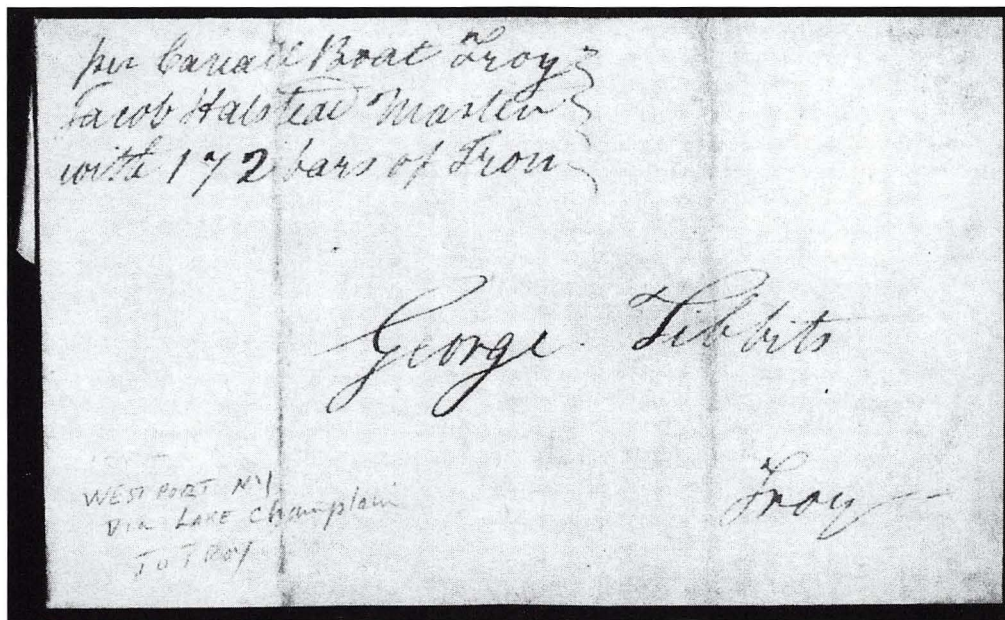 per Canall Boat Troy
Jacob Halstead Master
with 172 bars of Iron
George Tibbits
Troy
WESTPORT NY
VIA LAKE Champlain
TO TROY